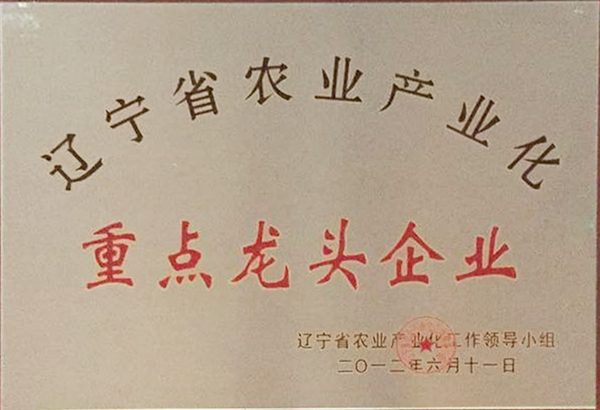 辽宁省农业产业化
重点龙头企业
辽宁省农业产业化工作领导小组
二〇一二年六月十一日